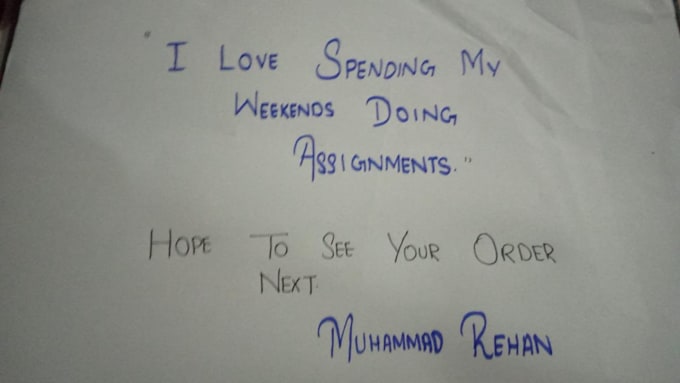 " I LOVE SPENDING MY
WEEKENDS DOING
ASSIGNMENTS."
HOPE TO SEE YOUR ORDER
NEXT.
MUHAMMAD REHAN